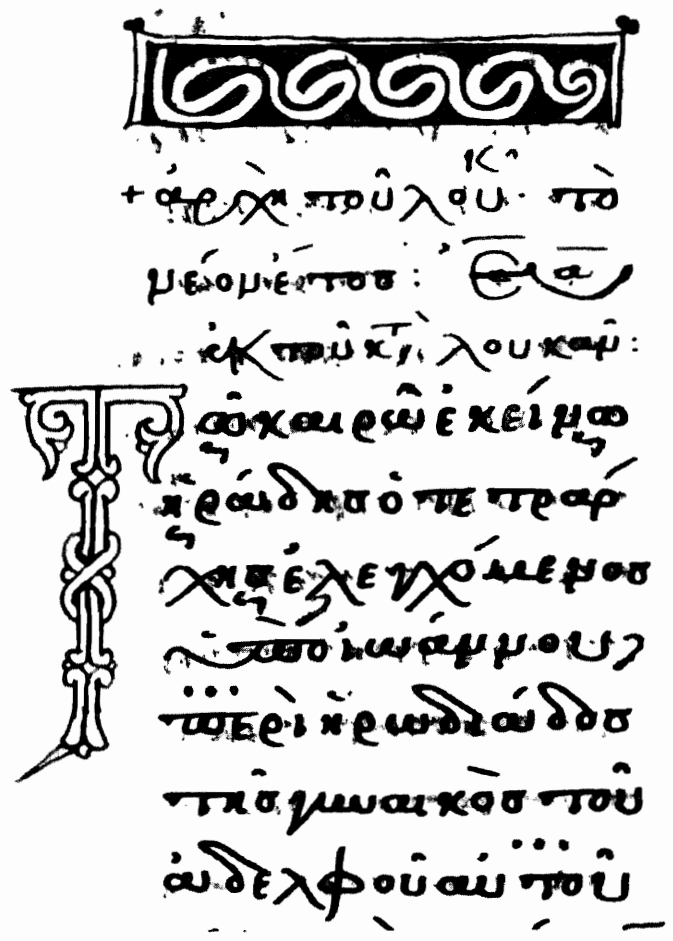 + ἀρχὴ τοῦ λουκ· τὸ
νέον ἔτοσ :
ἐκ τοῦ κτ λουκᾶν :
Τῶ καιρῶ ἐκείνω
ἡρώδησ ὁ τετράρ
χησ ἐλεγχόμενοσ
ὑπὸ ἰωάννου
περὶ ἡρωδιάδοσ
τῆσ γυναικὸσ τοῦ
ἀδελφοῦ αὐτοῦ